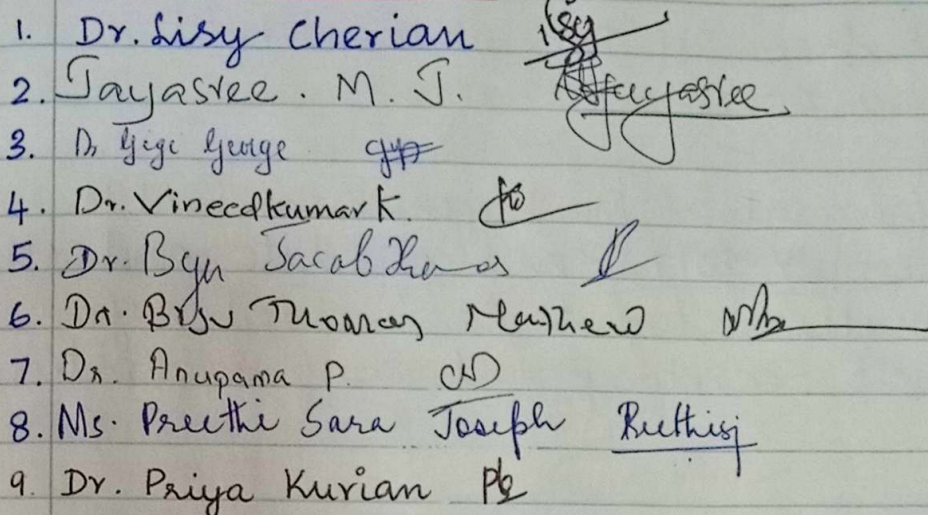 1. Dr. Lisy Cherian Lisy
2. Jayasree. M. J. Jayasree
3. Dr Gigi George
4. Dr. Vineedkumar K.
5. Dr. Byju Jacob
6. Dr. Biju Thomas Mathew
7. Dr. Anupama P.
8. Ms. Preethi Sara Joseph Preethisj
9. Dr. Priya Kurian